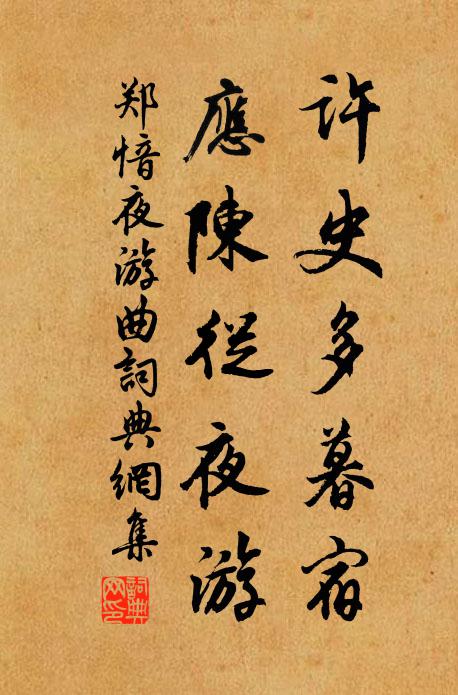 許史多暮宿
應陳從夜游
郑愔夜游曲詞典網集
詞典
网印